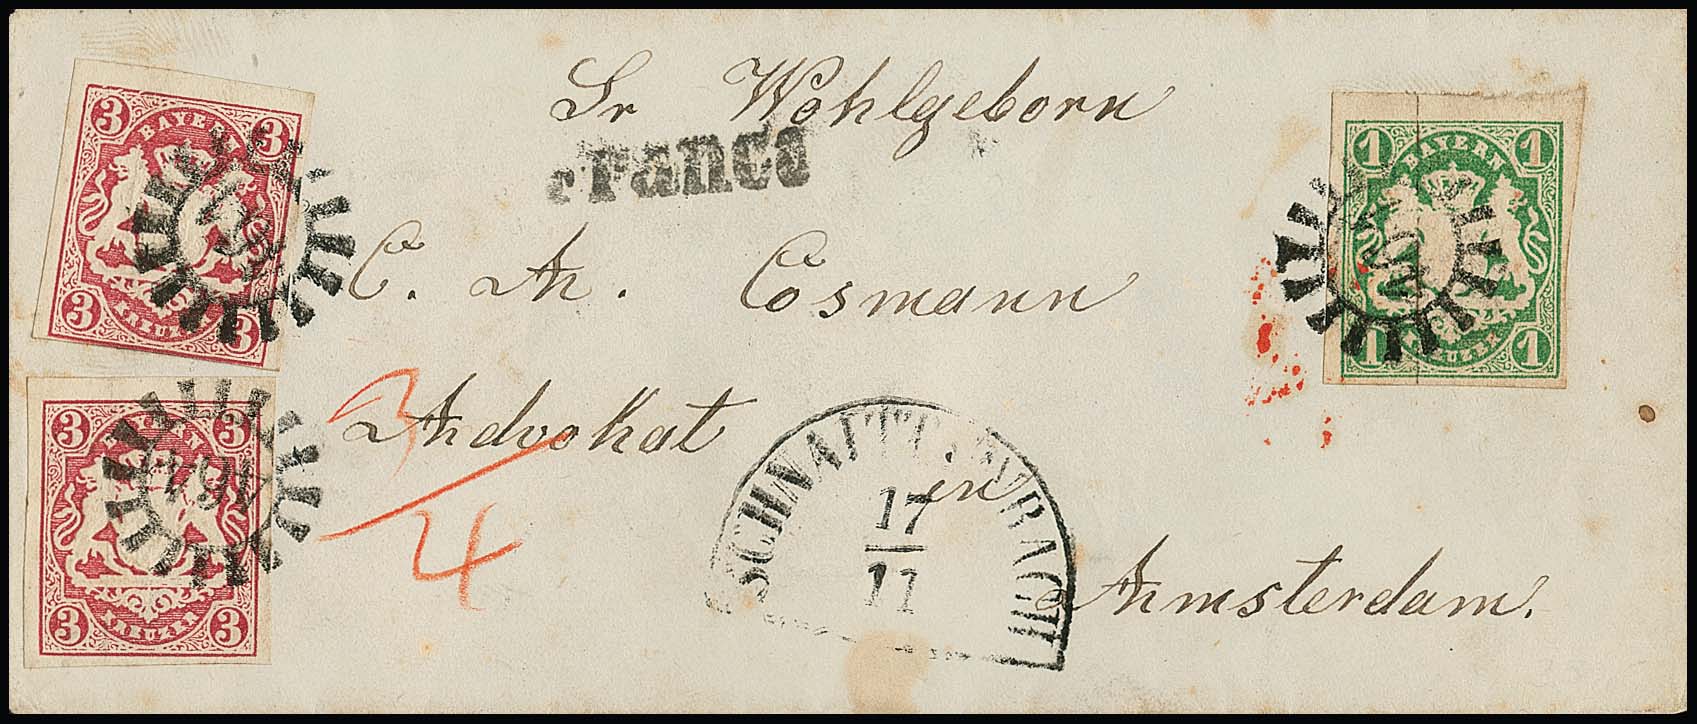 Sr Wohlgeborn
Franco
C. An. Cosmann
Advokat
in
Amsterdam.
3
4
17
11
464
3 3
BAYERN
3 KREUZER 3
3 3
BAYERN
3 KREUZER 3
1 1
BAYERN
1 KREUZER 1